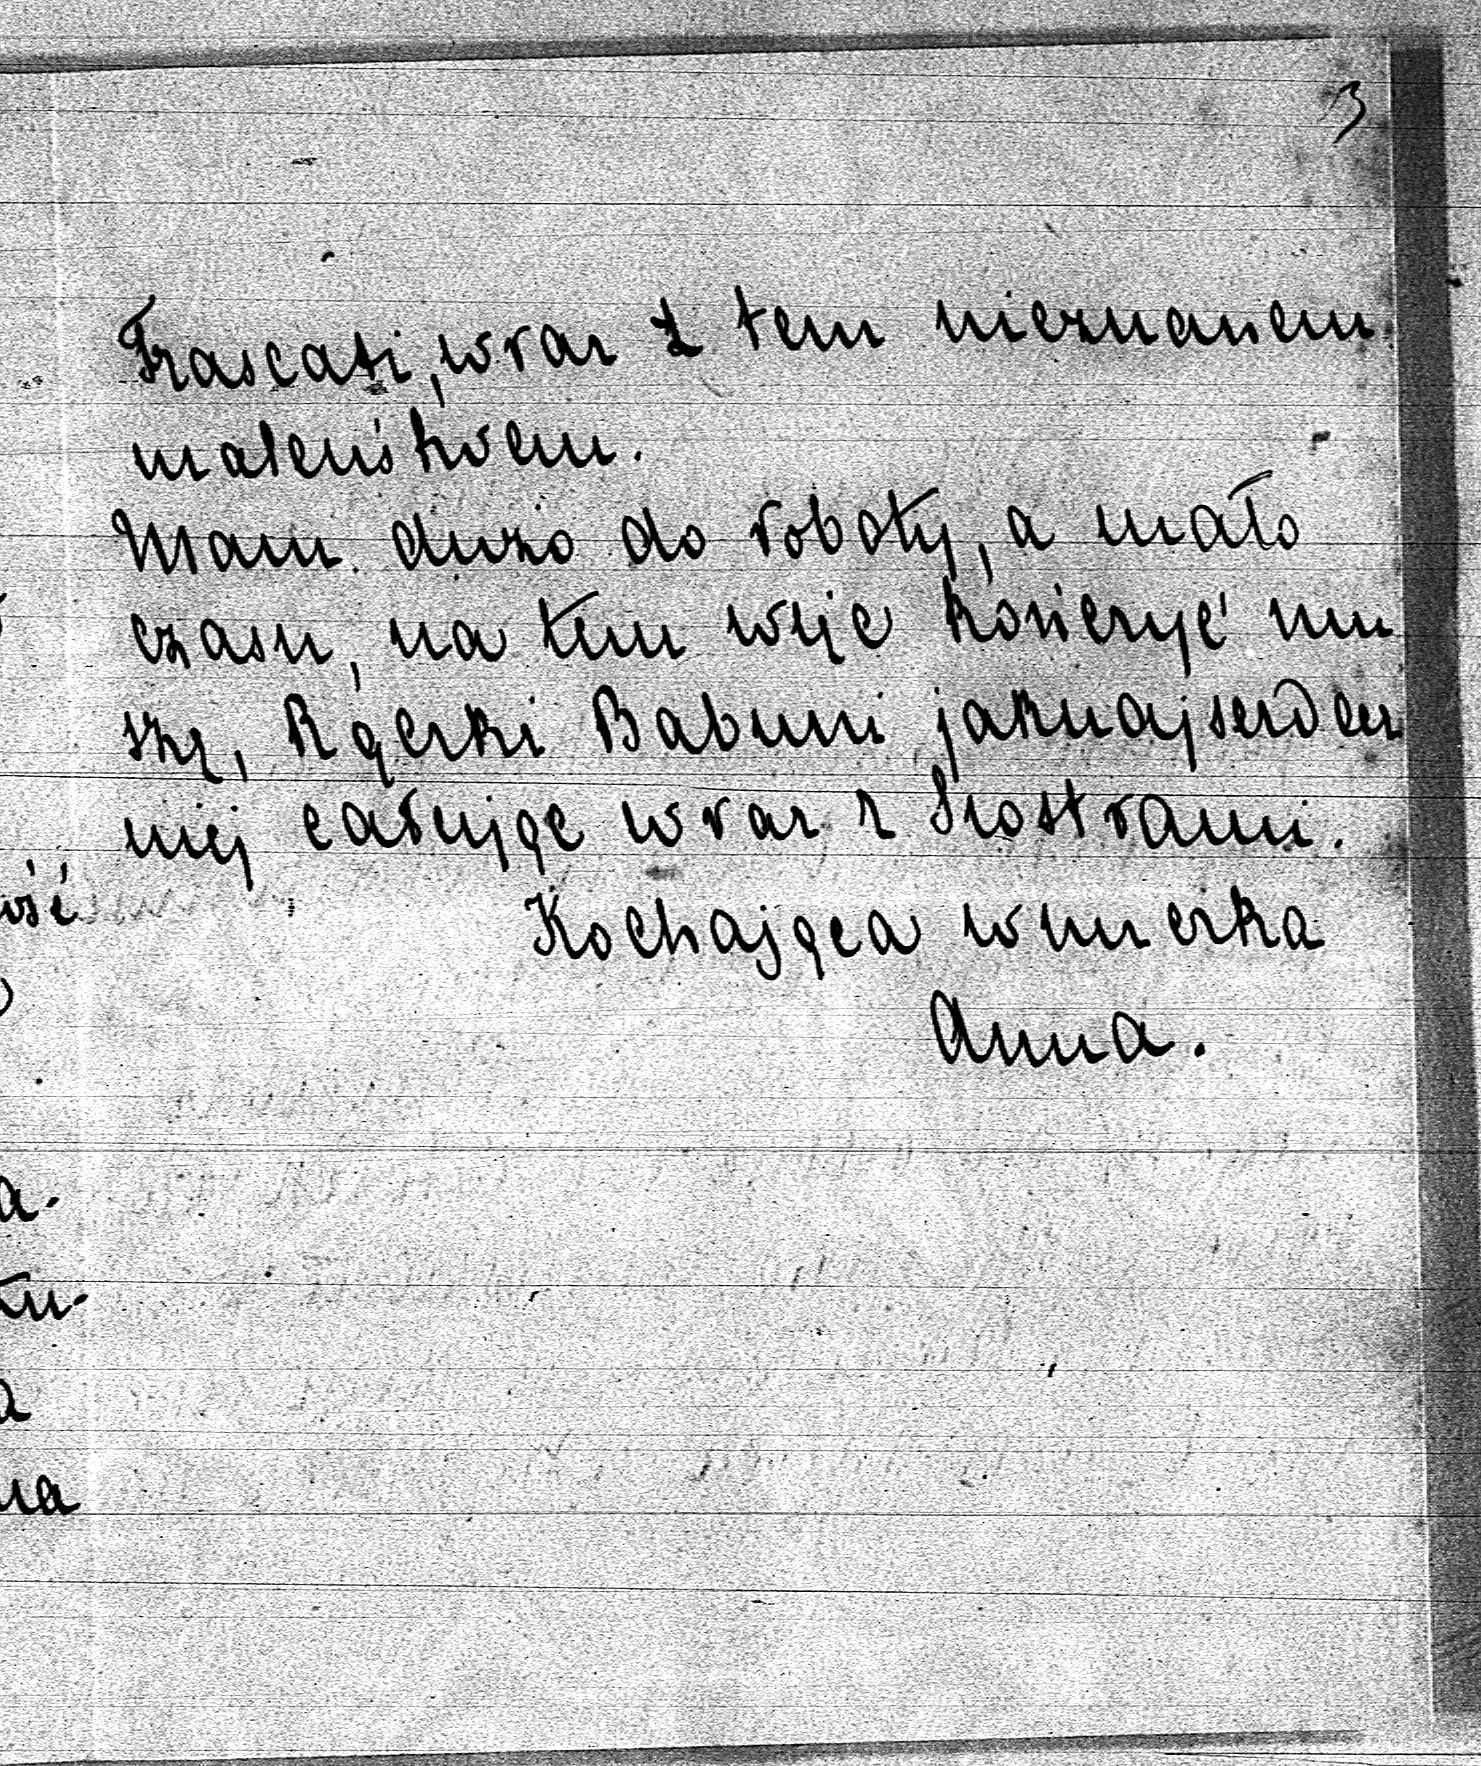 3
Frascati, wraz z tem nieznanem
maleństwem.
Mam dużo do roboty, a mało
czasu, na tem więc kończyć mu
szę, Rączki Babuni jaknajserdecz
niej całując wraz z Siostrami.
Kochająca wnuczka
Anna.